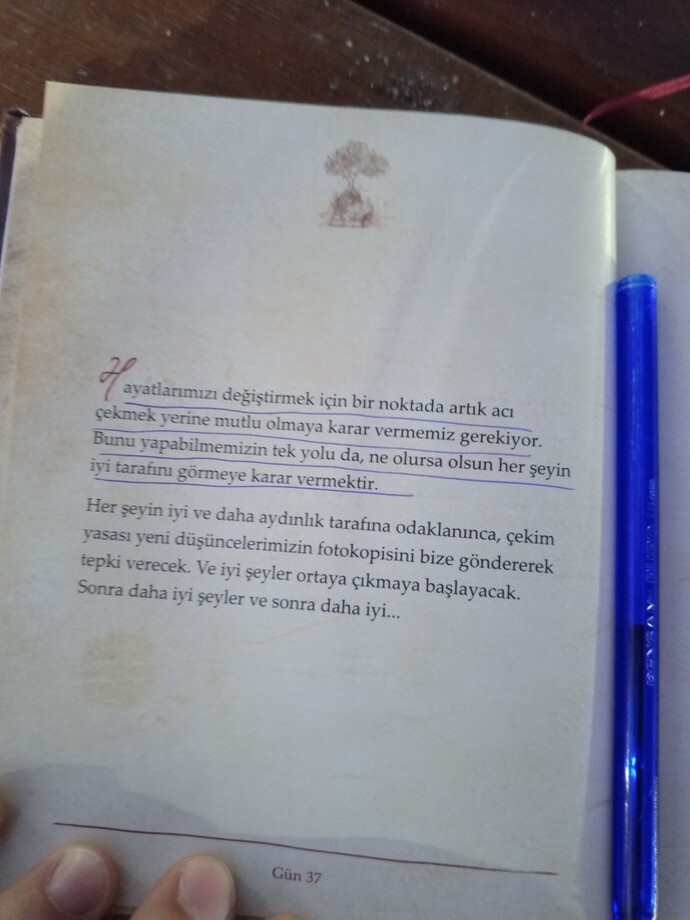 Hayatlarımızı değiştirmek için bir noktada artık acı
çekmek yerine mutlu olmaya karar vermemiz gerekiyor.
Bunu yapabilmemizin tek yolu da, ne olursa olsun her şeyin
iyi tarafını görmeye karar vermektir.
Her şeyin iyi ve daha aydınlık tarafına odaklanınca, çekim
yasası yeni düşüncelerimizin fotokopisini bize göndererek
tepki verecek. Ve iyi şeyler ortaya çıkmaya başlayacak.
Sonra daha iyi şeyler ve sonra daha iyi...
Gün 37